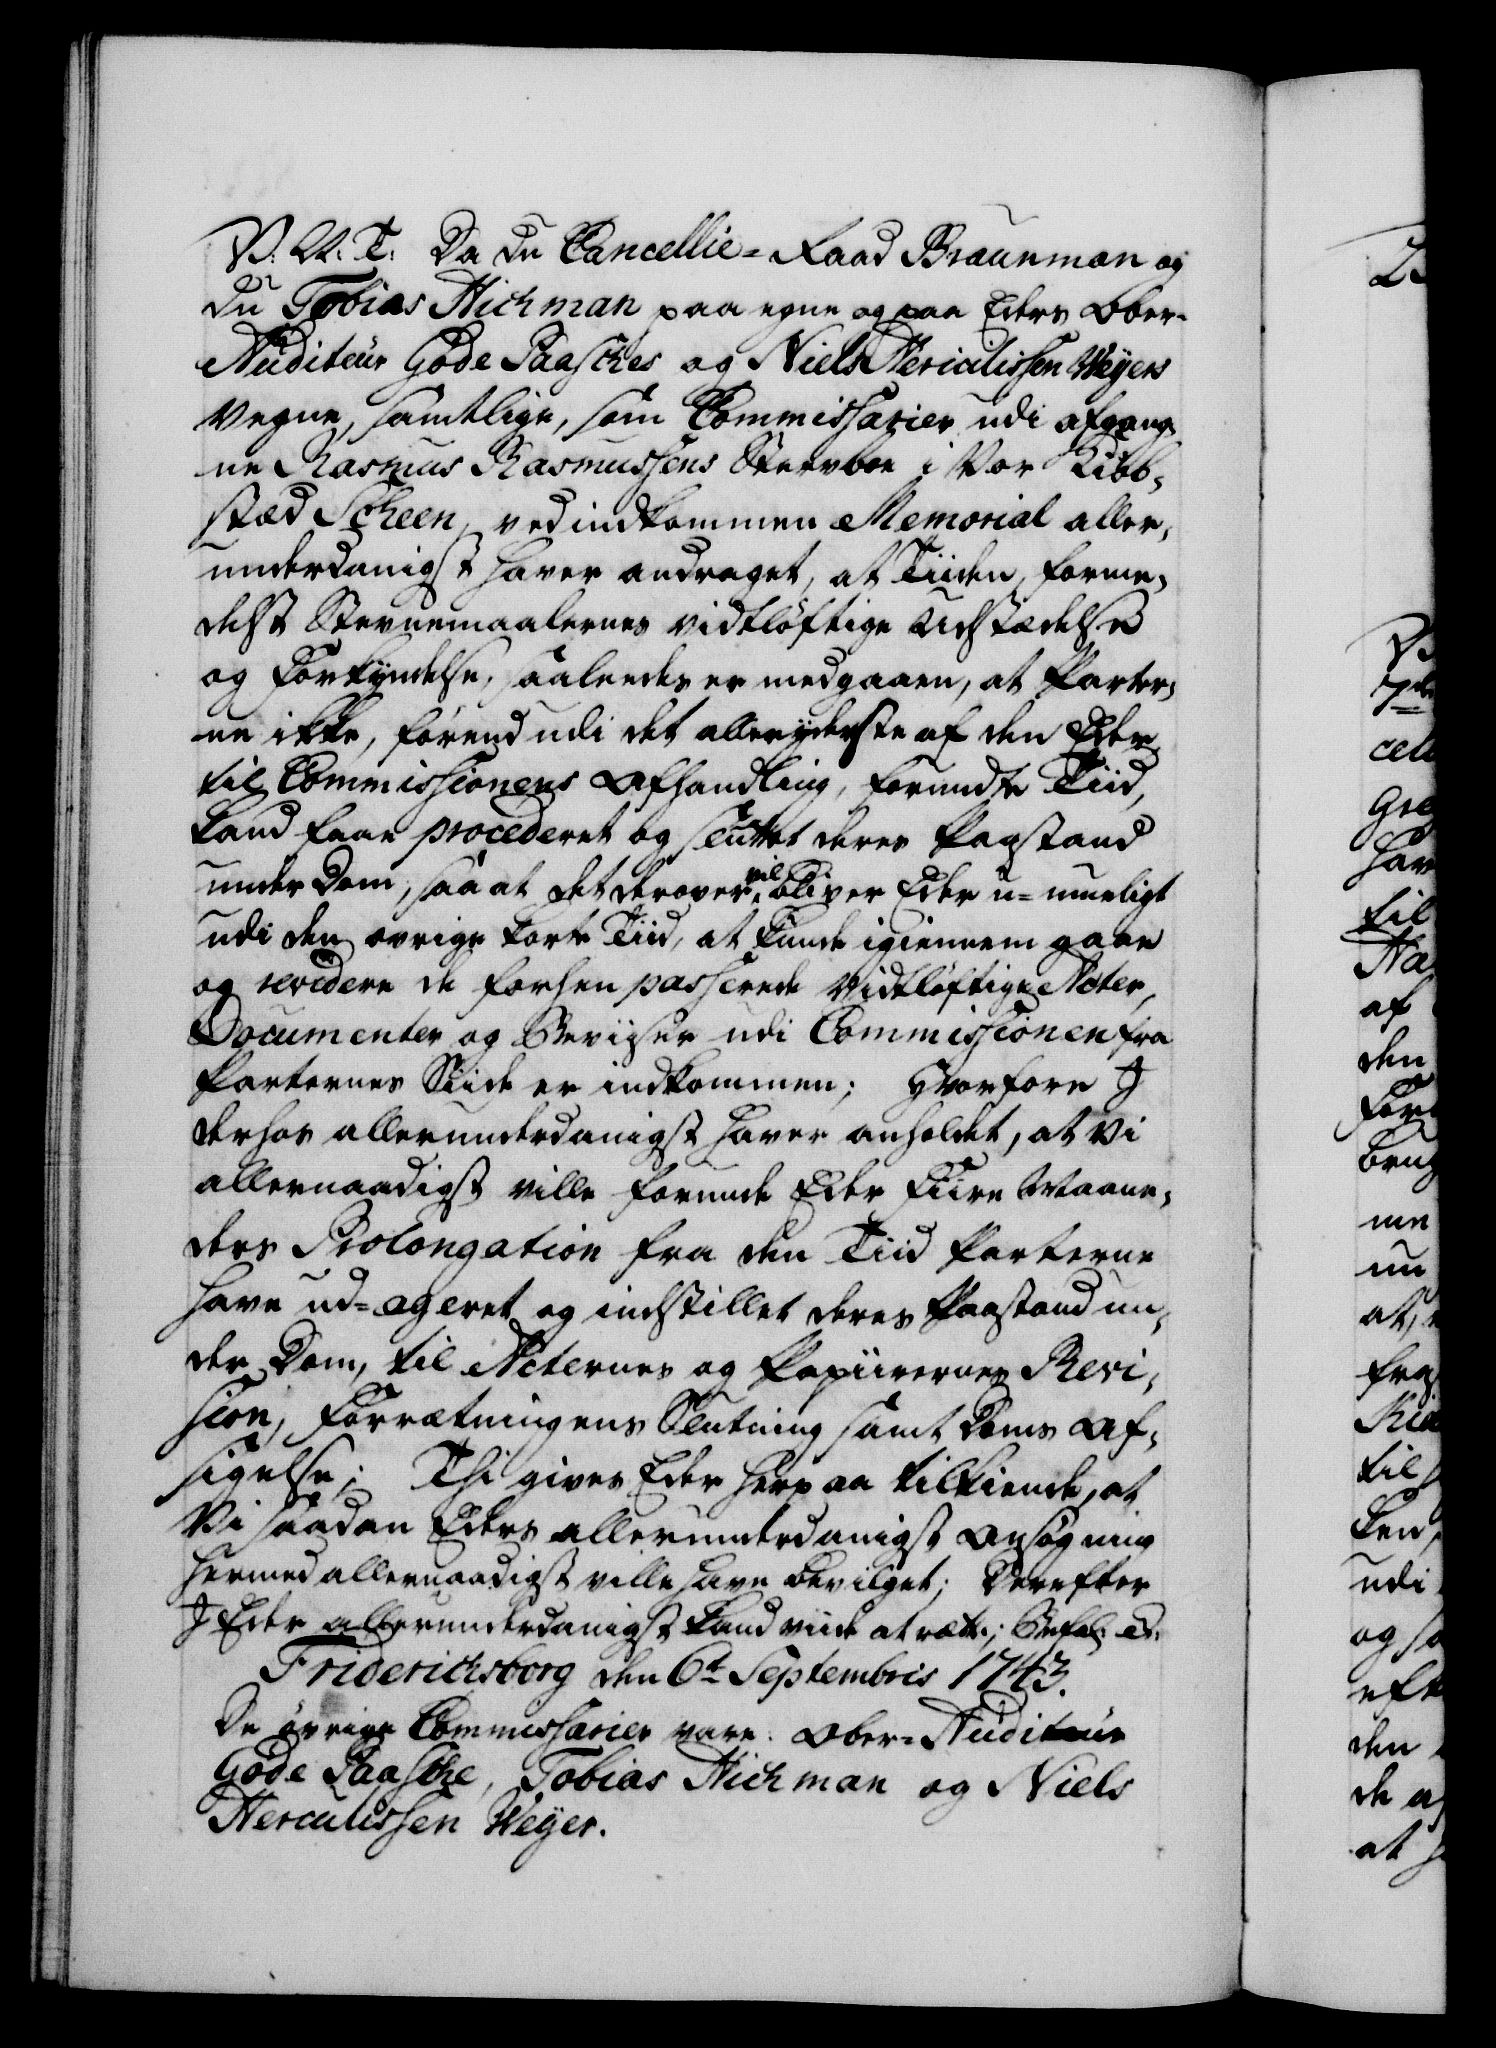 V. G. T. Da du Cancellie-Raad Braunman og
du Tobias Aichman paa egne og paa Eders Ober-
Auditeur Gode Paasches og Niels Herculissen Weyers
Vegne, samtlige, som Commissarier udi afgang-
ne Rasmus Rasmussens Sterboe i Vor Kiøb-
stæd Scheen, ved indkommen Memorial aller-
underdanigst haver andraget, at Tiiden, forme-
delst Stevnemaalernes vidtløftige Udstædelse
og Forkyndelse, saaledes er medgaaen, at Parter-
ne ikke, førend udi det alleryderste af den Eder
til Commissionens Afhandling, forundte Tiid,
kand faae procederet og sluttet deres Paastand
under Dom, saa at det derover vil bliver Eder u-mueligt
udi den øvrige korte Tiid, at kunde igiennem gaae
og revidere de forhen passerede vidtløftige Acter,
Documenter og Beviiser udi Commissionen fra
Parternes Siide er indkommen; Hvorfore I
derhos allerunderdanigst haver anholdet, at Vi
allernaadigst ville forunde Eder Fiire Maane-
ders Prolongation fra den Tiid Parterne
have ud-ageret og indstillet deres Paastand un-
der Dom, til Acternes og Papiirernes Revi-
sion, Forrætningens Slutning samt Doms Af-
sigelse; Thi gives Eder herpaa tilkiende, at
Vi saadan Eders allerunderdanigst Ansøgning
hermed allernaadigst ville have bevilget; Derefter
I Eder allerunderdanigst kand viide at rætte; Befal: etc.
Friderichsborg den 6t Septembris 1743.
De øvrige Commissarier vare: Ober-Auditeur
Gode Paasche, Tobias Aichman og Niels
Herculissen Weyer.